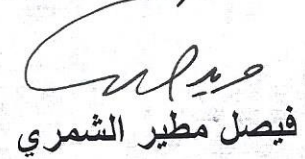 فيصل مطير الشمري